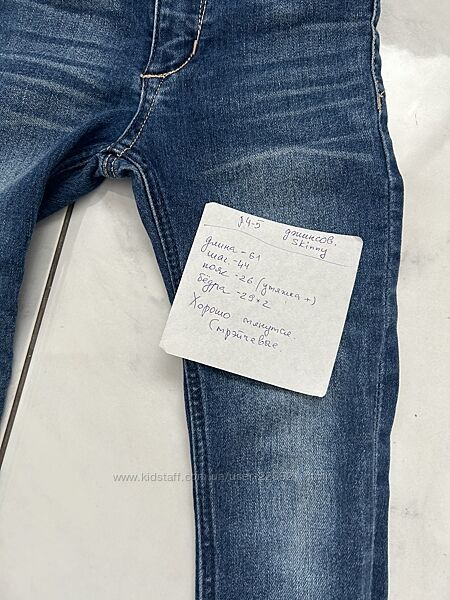 р4-5 джинсов.
skinny
длина - 61
шаг. - 44
пояс - 26 (утяжка +)
бёдра - 29×2
Хорошо тянутся.
Стрэйчевые.
www.kidstaff.com.ua/user-